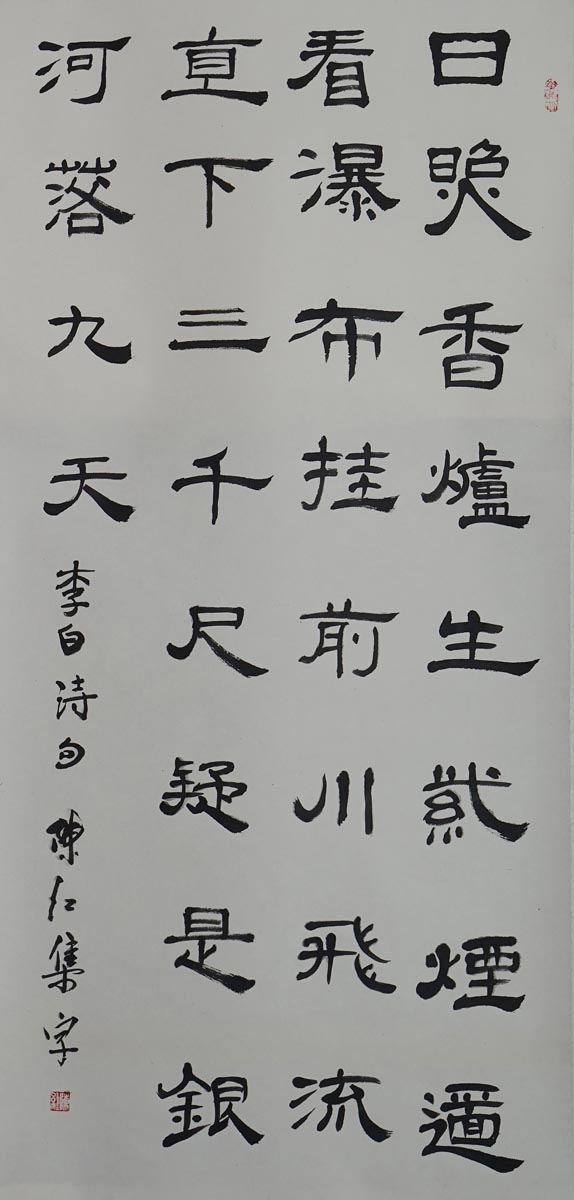 日照香爐生紫煙遥
看瀑布挂前川飛流
直下三千尺疑是銀
河落九天
李白诗句 陳集字